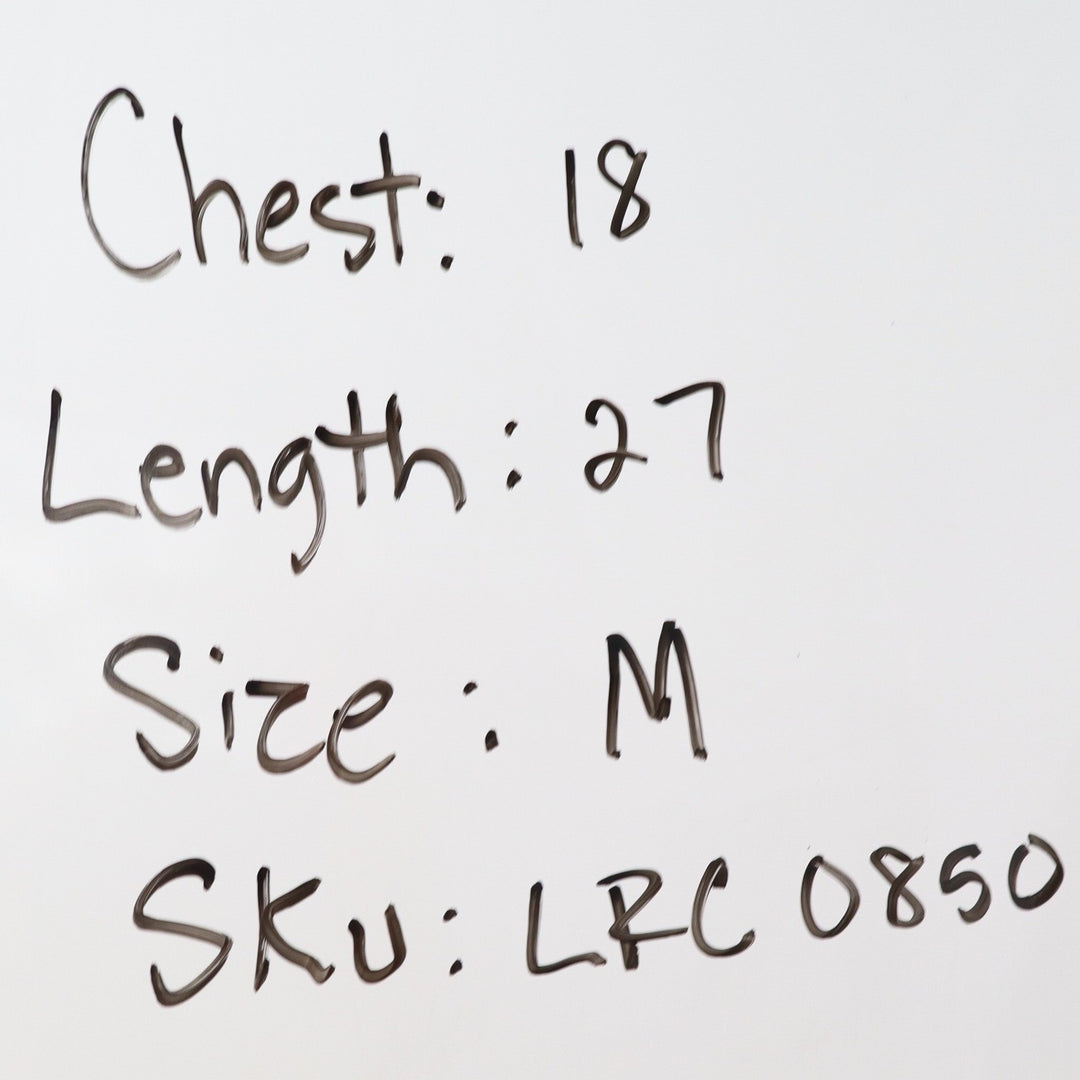 Chest: 18
Length: 27
Size: M
SKu: LRC 0850